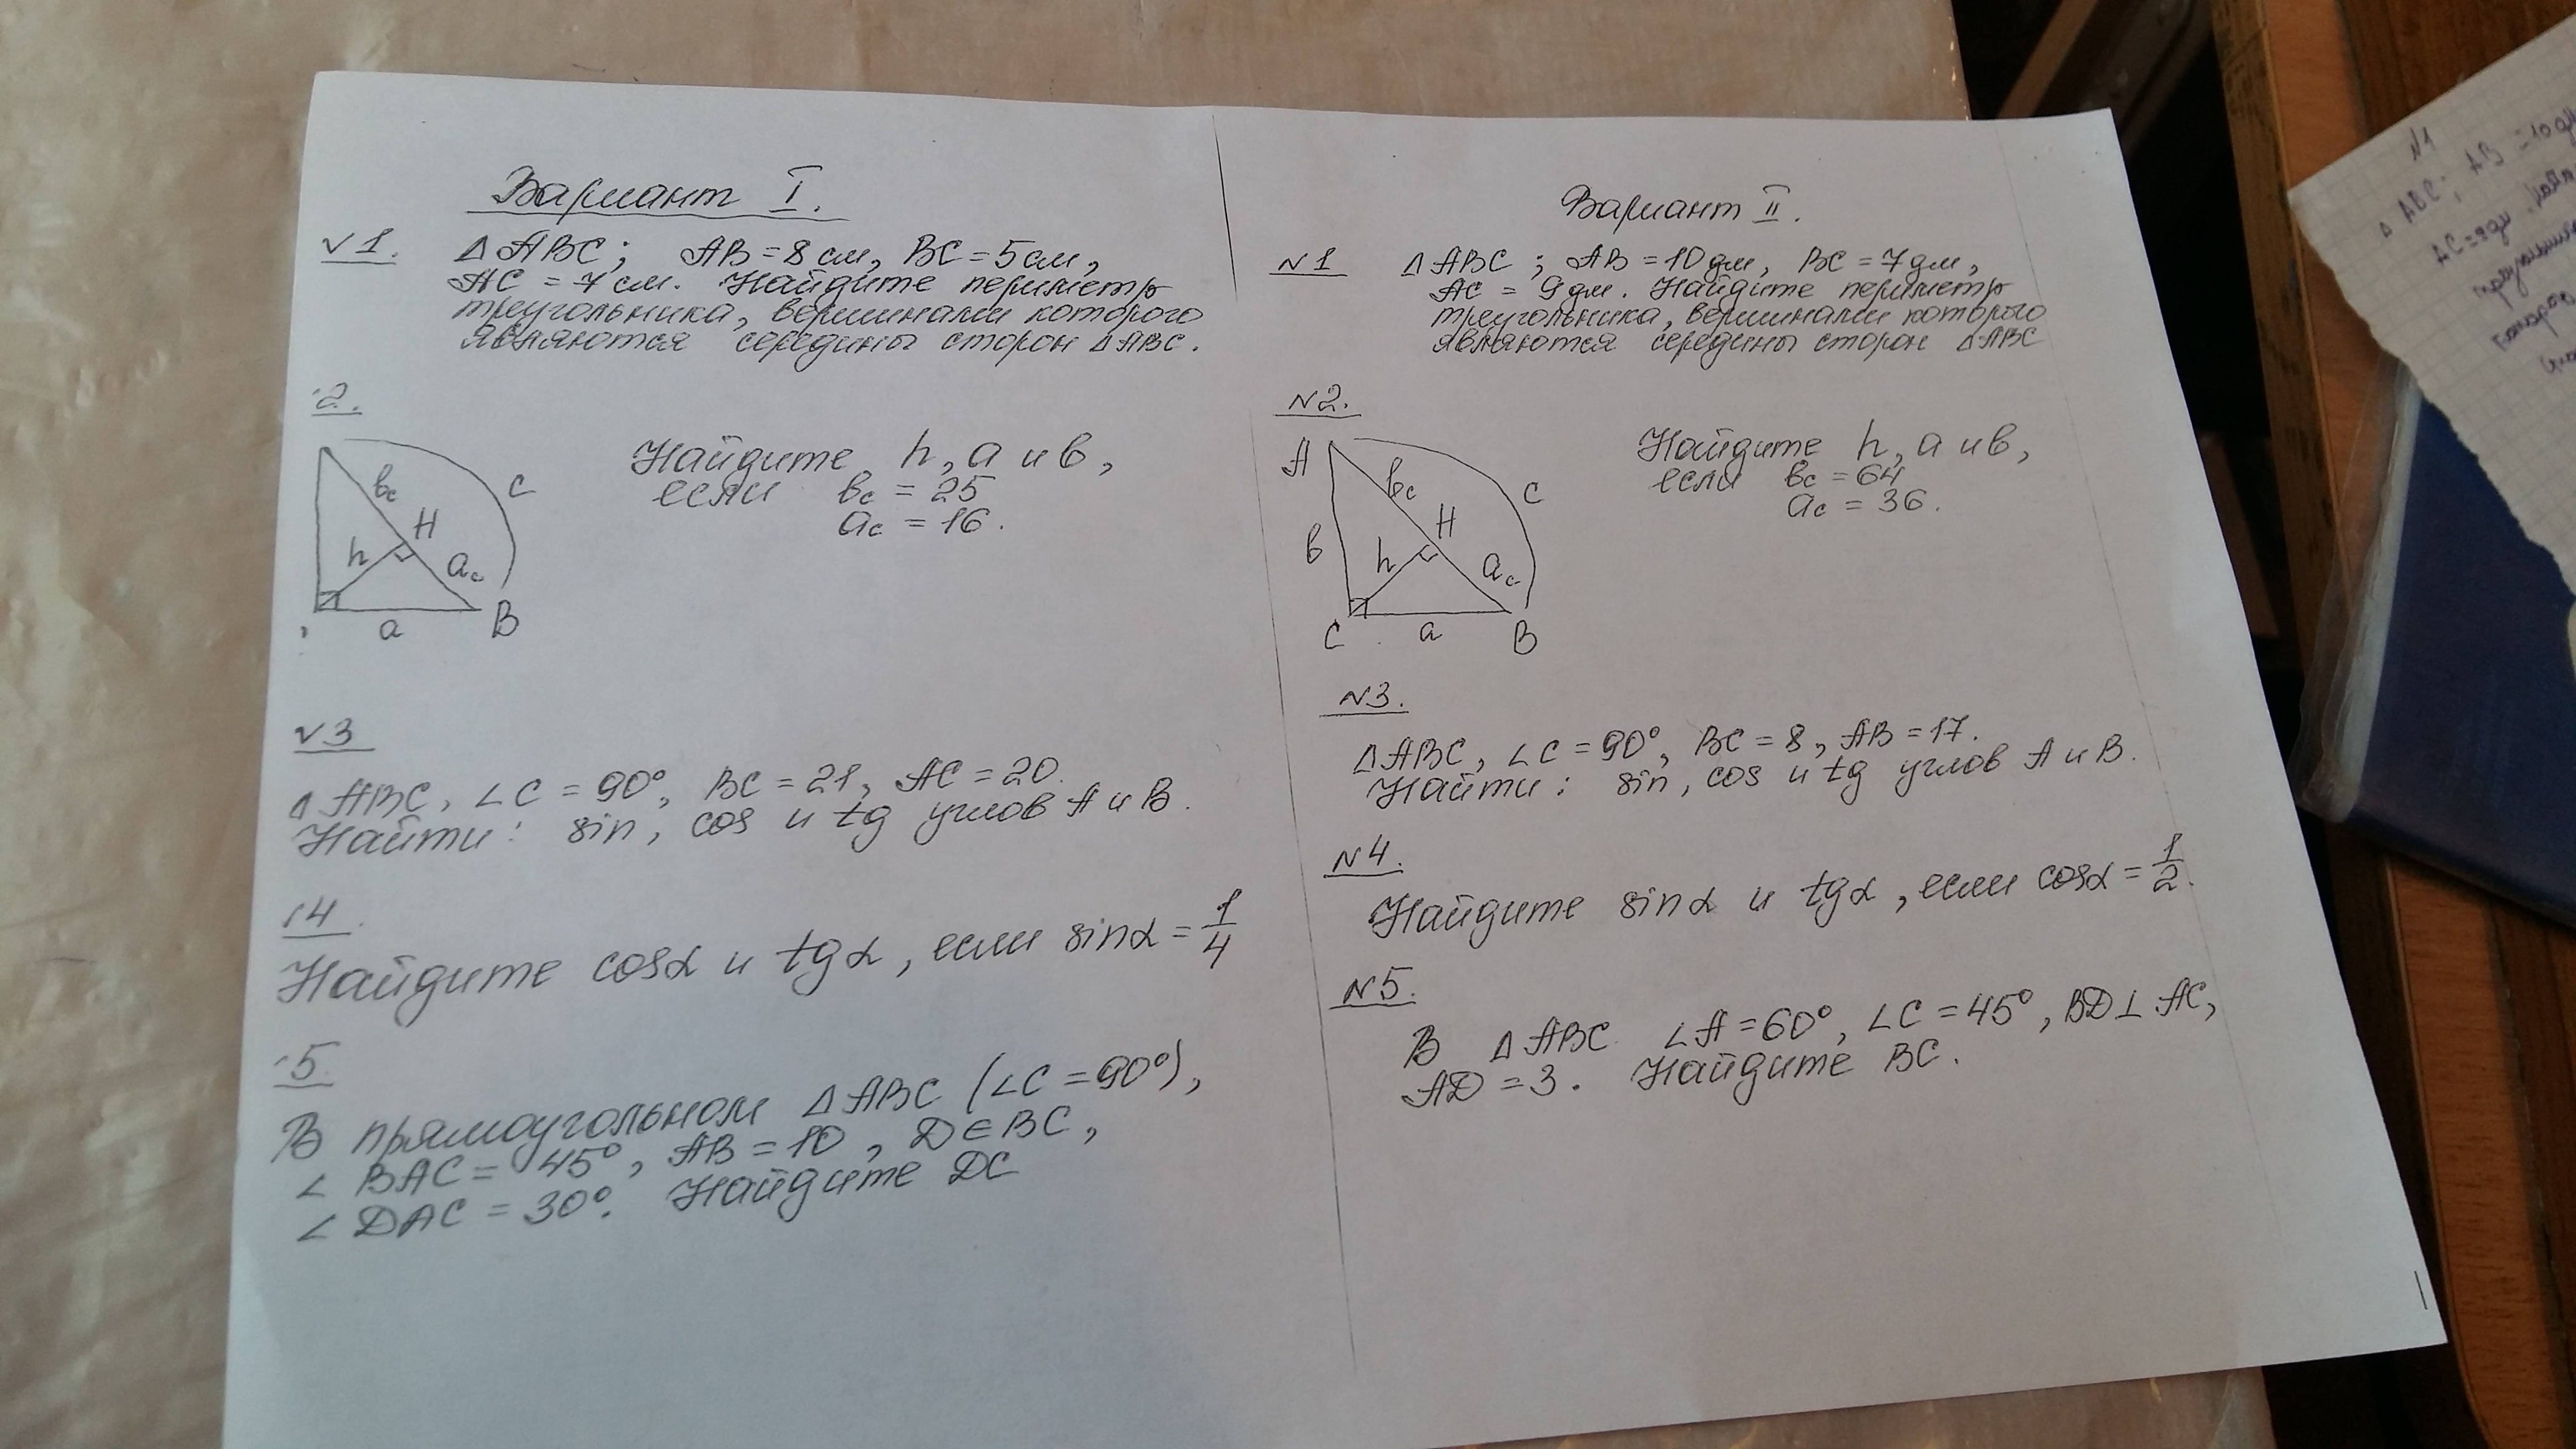 Вариант I.
√1. Δ ABC; AB = 8 см, BC = 5 см,
AC = 7 см. Найдите периметр
треугольника, вершинами которого
являются середины сторон Δ ABC.
2.
bc
C
H
h
ac
a
B
Найдите h, a и b,
если bc = 25
ac = 16.
√3
Δ ABC, ∠C = 90°, BC = 21, AC = 20.
Найти: sin, cos и tg углов A и B.
4.
Найдите cosα и tgα, если sinα = 1/4
5.
В прямоугольном Δ ABC (∠C = 90°),
∠ BAC = 45°, AB = 10, D ∈ BC,
∠ DAC = 30°. Найдите DC
Вариант II.
N1 Δ ABC; AB = 10 дм, BC = 7 дм,
AC = 9 дм. Найдите периметр
треугольника, вершинами которого
являются середины сторон Δ ABC
N2.
A
bc
C
H
b
h
ac
C
a
B
Найдите h, a и b,
если bc = 64
ac = 36.
N3.
Δ ABC, ∠C = 90°, BC = 8, AB = 17.
Найти: sin, cos и tg углов A и B.
N4.
Найдите sinα и tgα, если cosα = 1/2.
N5.
В Δ ABC ∠A = 60°, ∠C = 45°, BD ⊥ AC,
AD = 3. Найдите BC.
N1
Δ ABC; AB = 10